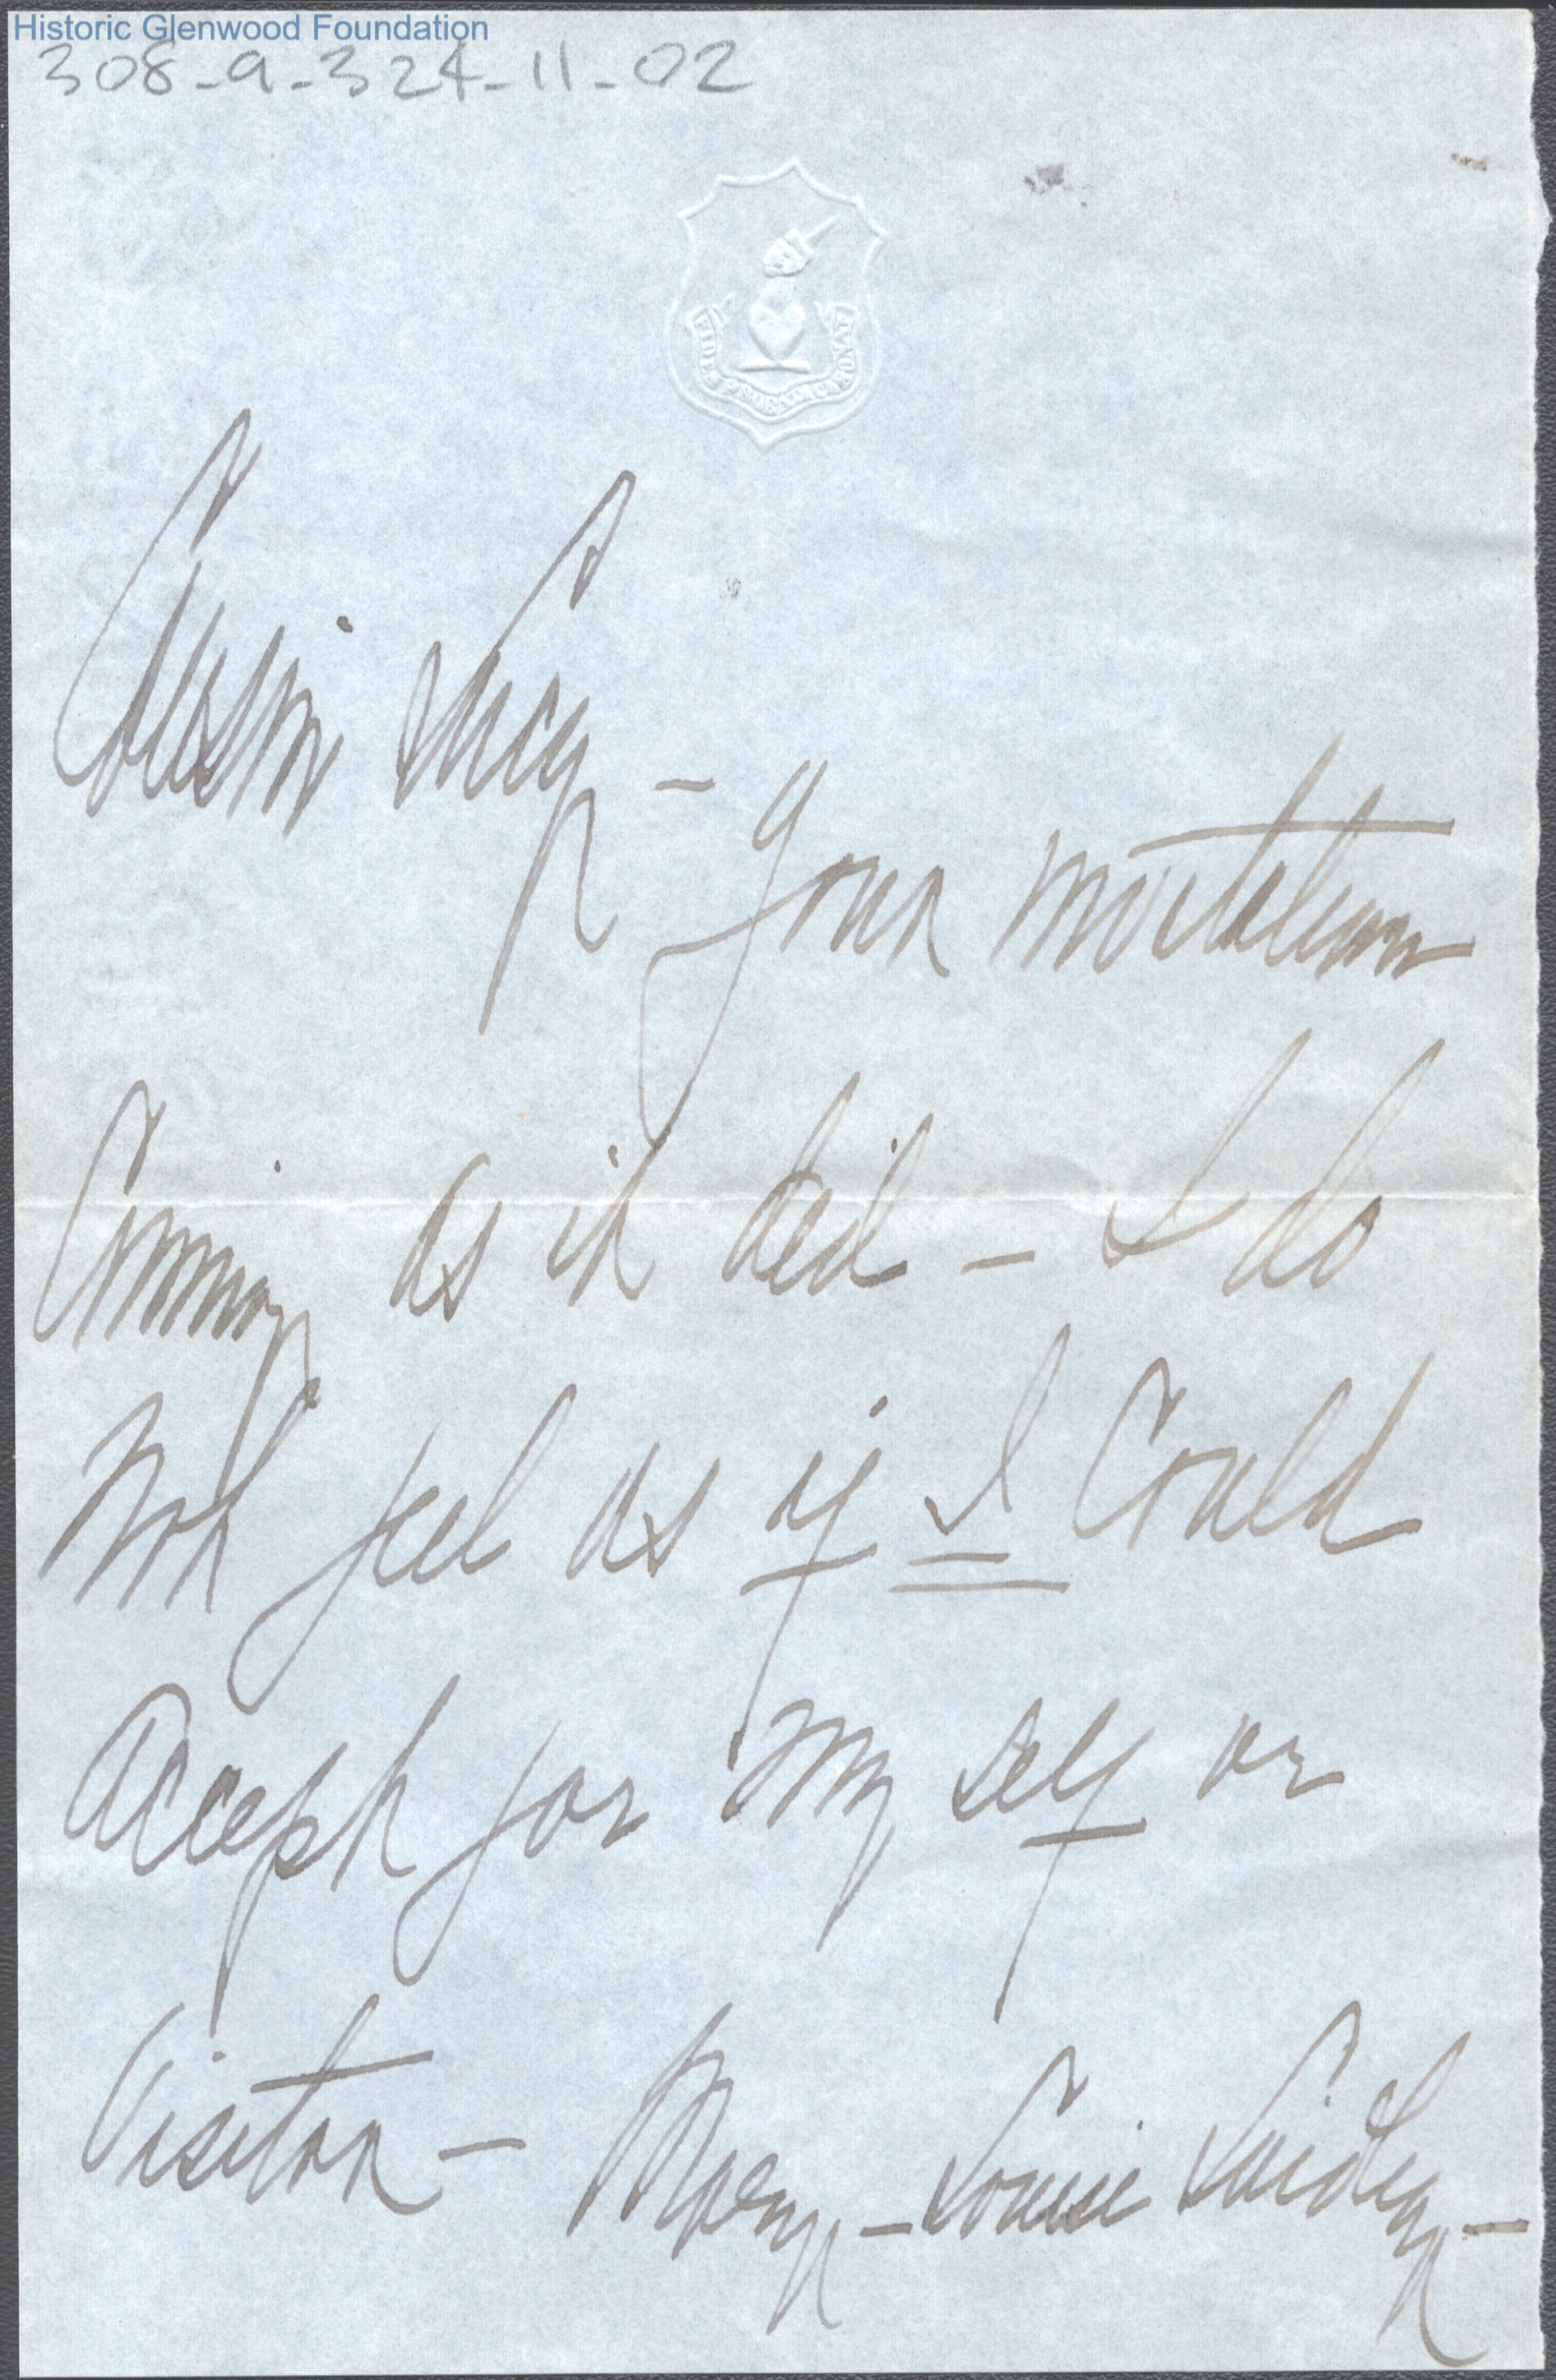 Historic Glenwood Foundation
308-9-324-11-02
FIDES PROBATA CORONAT
Cousin Lucy –
your invitation
Coming as it did – I do
Not feel as if I Could
Accept for my self or
Visitor – Mary – Louise